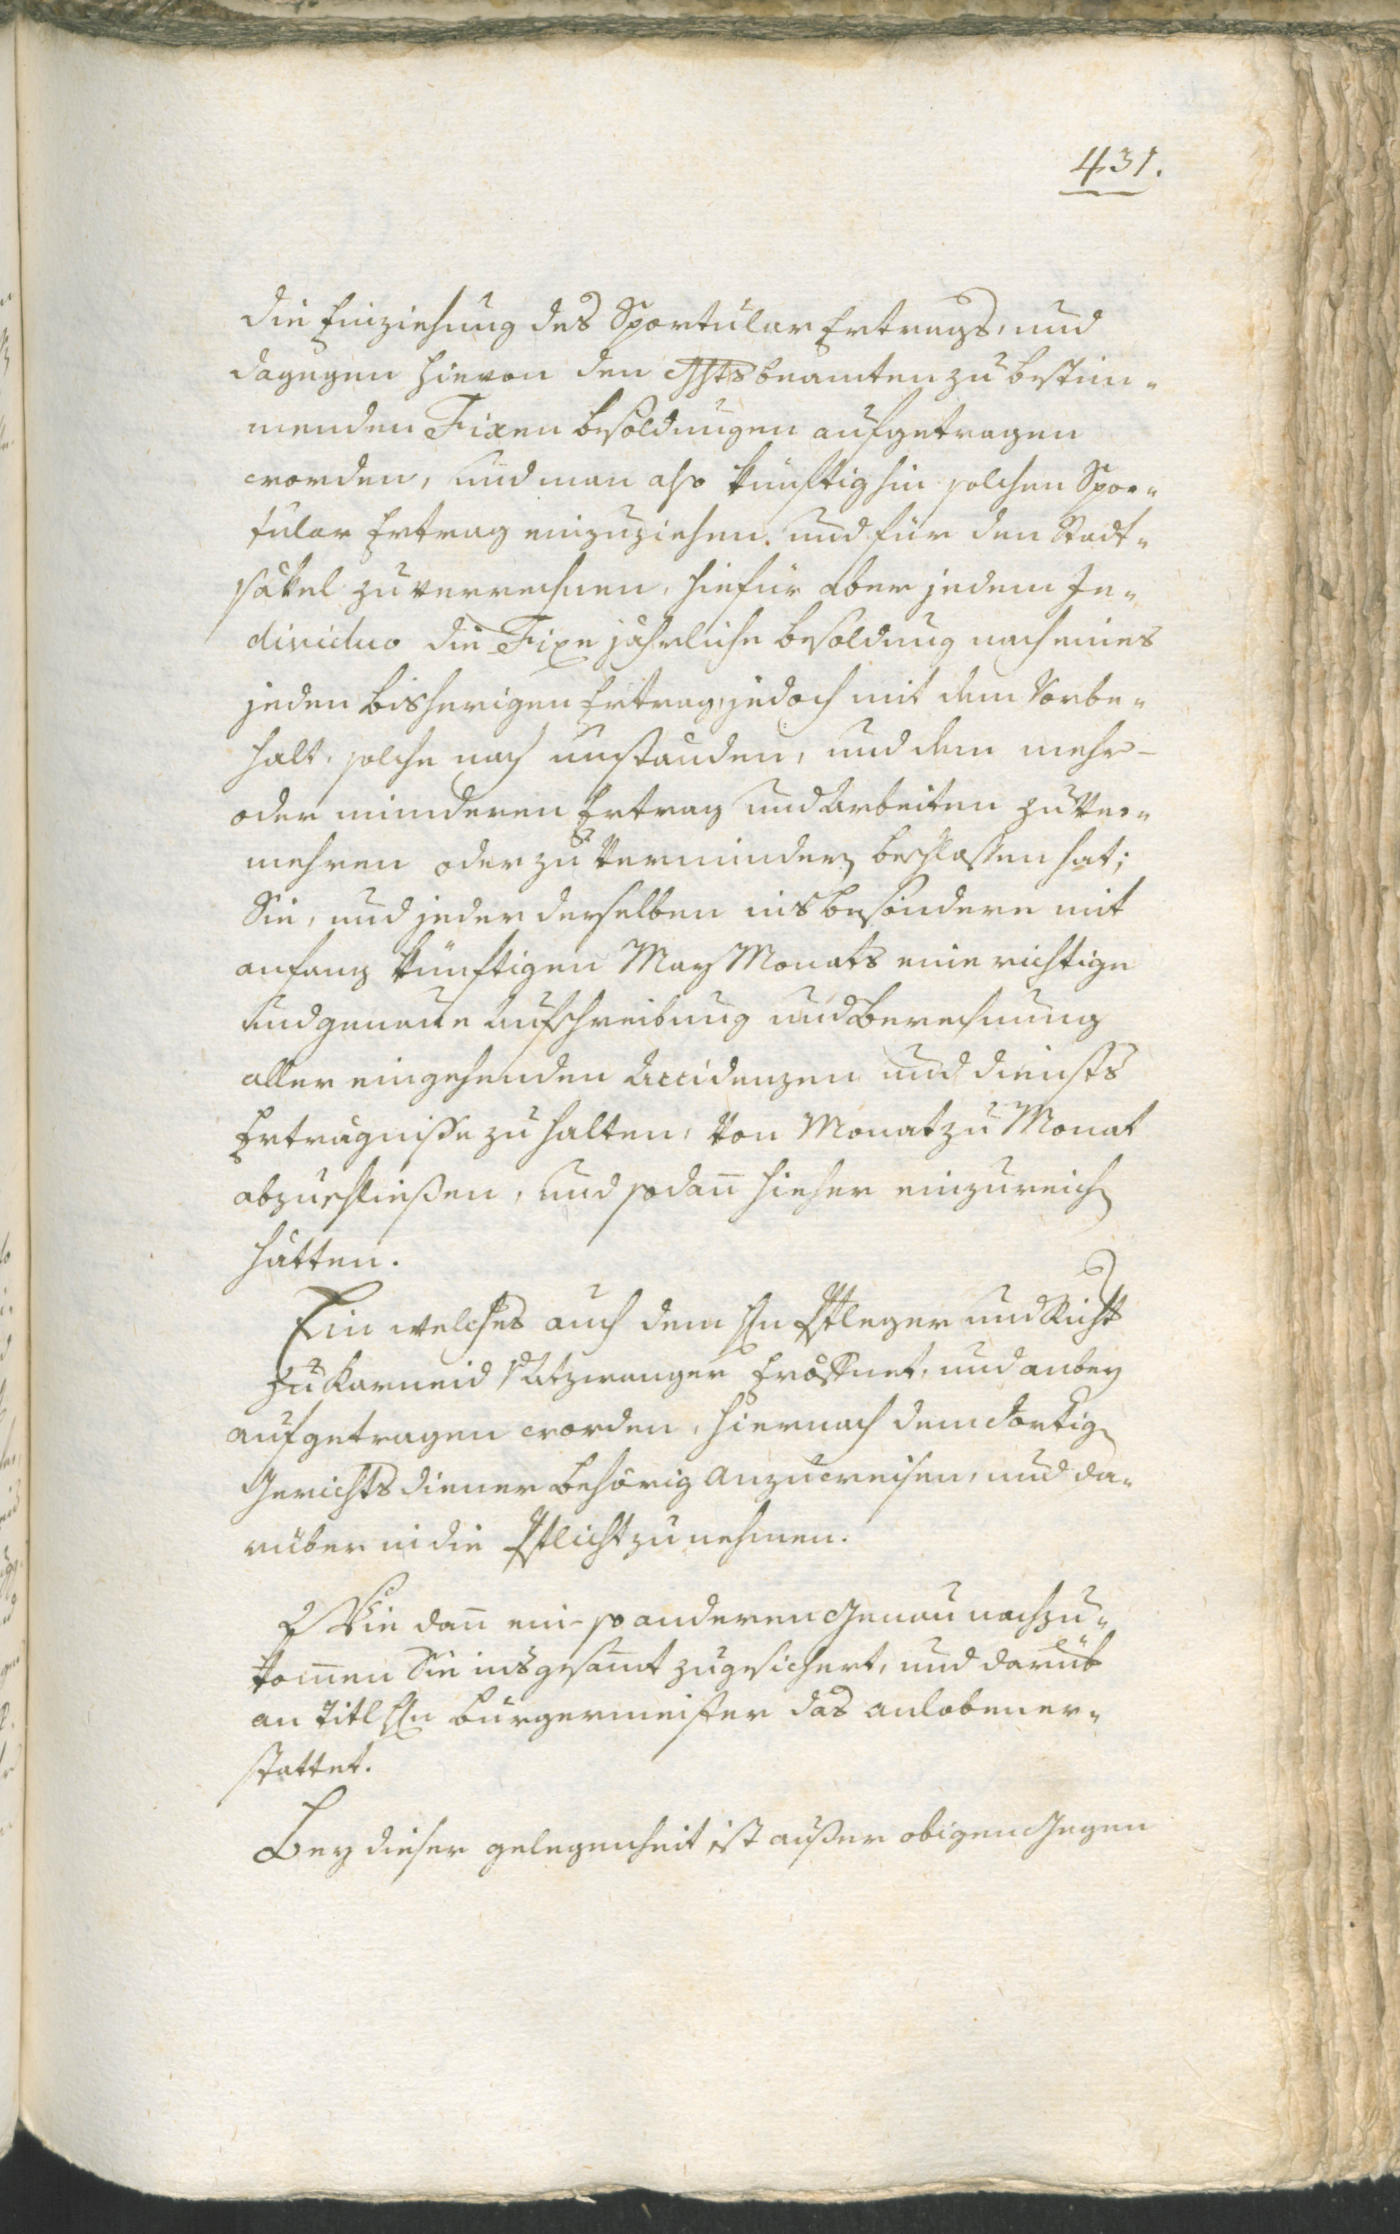 431.
die Einziehung des Sportular Ertrags, und
dagegen hievon den Ghtsbeamten zu bestim-
menden Fixen besoldungen aufgetragen
worden, und man also künftighin solchen Spor-
tular Ertrag einzuziehen, und für den Stadt-
säkel zu verrechnen, hiefür aber jedem In-
dividuo die Fixe jährliche besoldung nach eines
jeden bisherigen Ertrag, jedoch mit dem Vorbe-
halt, solche nach umständen, und dem mehr-
oder minderen Ertrag und Arbeiten zu ver-
mehren oder zu vermindern beschlossen hat;
Sie, und jeder derselben insbesondere mit
anfang künftigen May Monats eine richtige
und genaue Aufschreibung und Berechnung
aller eingehenden Accidenzen und diensts
Erträgnisse zu halten, von Monat zu Monat
abzuschließen, und sodann hieher einzureich
hätten.
Ein welches auch dem Hn Pfleger und Richt
zu Karneid Atzwanger eröffnet, und anbey
aufgetragen worden, hiernach dem dortig
Gerichtsdiener behörig anzuweisen, und da-
rüber in die Pflicht zu nehmen.
Wie dan ein- so anderen genau nachzu-
komen Sie insgesamt zugesichert, und darüb
an Titl Hn bürgermeister das anloben er-
stattet.
Bey dieser gelegenheit ist außer obigen Gegen